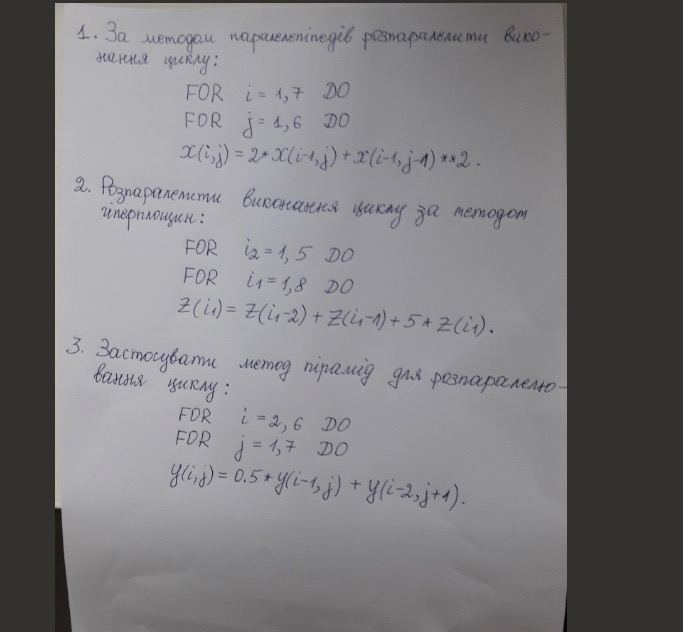 1. За методом паралелепіпедів розпаралелити вико-
нання циклу:
FOR i = 1,7 DO
FOR j = 1,6 DO
X(i,j) = 2*X(i-1,j) + X(i-1,j-1)**2.
2. Розпаралелити виконання циклу за методом
гіперплощин:
FOR i₂ = 1,5 DO
FOR i₁ = 1,8 DO
Z(i₁) = Z(i₁-2) + Z(i₁-1) + 5*Z(i₁).
3. Застосувати метод пірамід для розпаралелю-
вання циклу:
FOR i = 2,6 DO
FOR j = 1,7 DO
Y(i,j) = 0.5*Y(i-1,j) + Y(i-2,j+1).